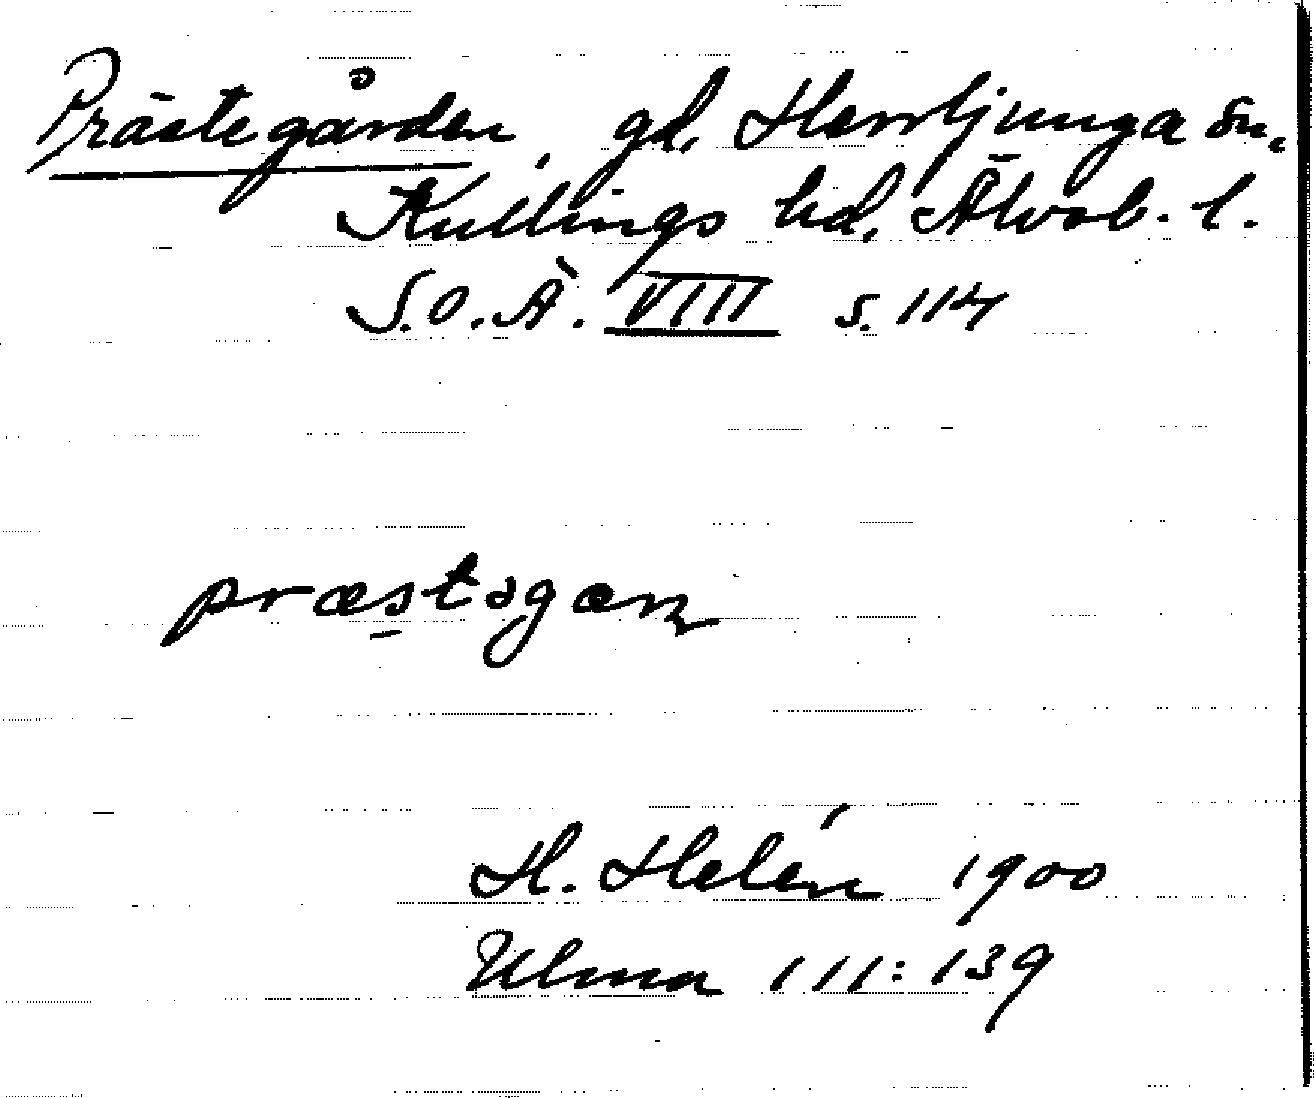 Prästegården, gd, Herrljunga sn,
Kullings hd, Älvsb. l.
S.O.Ä. VIII s. 114
H. Helén 1900
Ulma 111:139